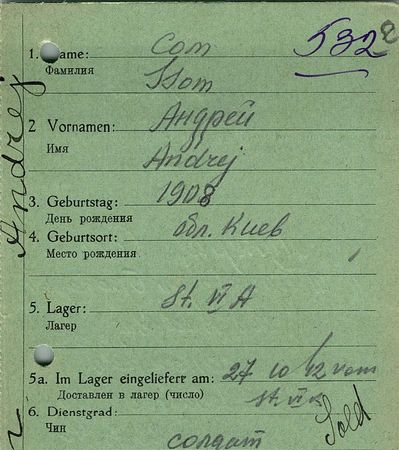 532
1. Name: Сот
Фамилия
Ssom
2 Vornamen: Андрей
Имя
Andrej
3. Geburtstag: 1908
День рождения
4. Geburtsort: обл. Киев
Место рождения
5. Lager: St. VI A
Лагерь
5a. Im Lager eingeliefert am: 27 10 42 vom
Доставлен в лагерь (число) St. VI
6. Dienstgrad: Sold
Чин
солдат
Andrej